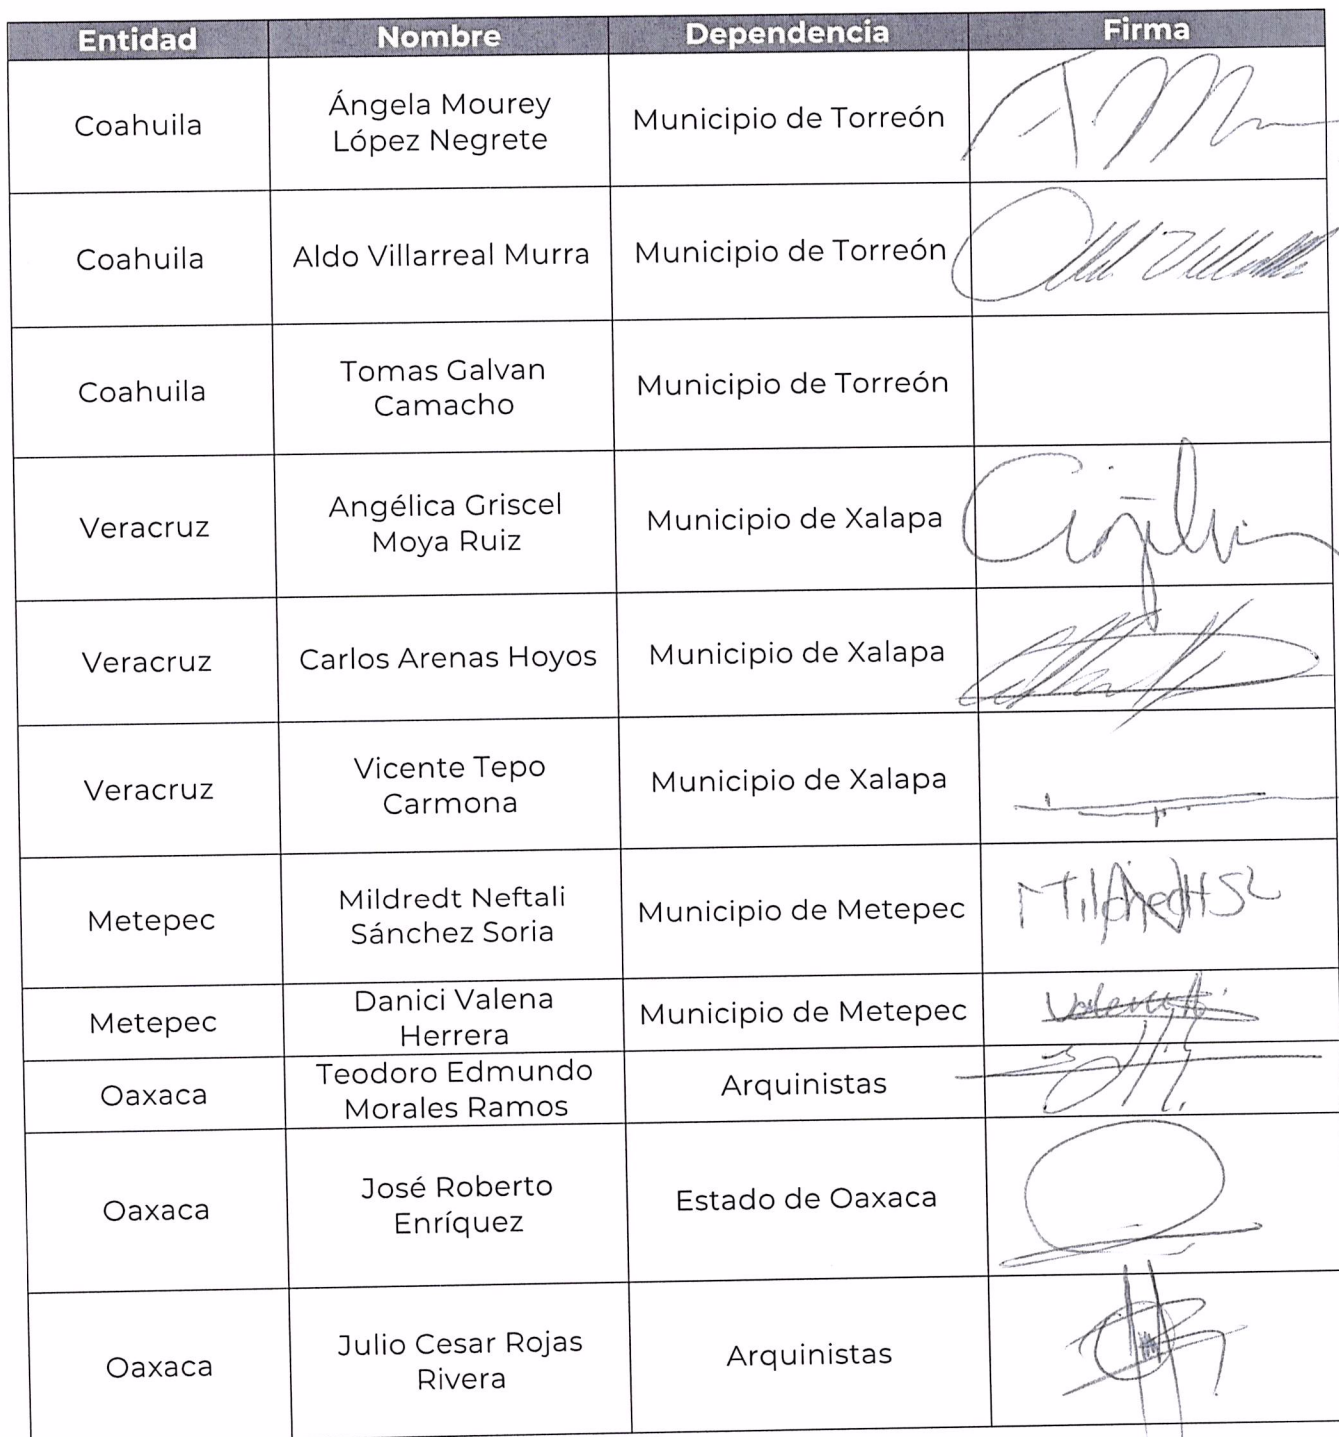 Entidad Nombre Dependencia Firma
Coahuila Ángela Mourey López Negrete Municipio de Torreón
Coahuila Aldo Villarreal Murra Municipio de Torreón
Coahuila Tomas Galvan Camacho Municipio de Torreón
Veracruz Angélica Griscel Moya Ruiz Municipio de Xalapa
Veracruz Carlos Arenas Hoyos Municipio de Xalapa
Veracruz Vicente Tepo Carmona Municipio de Xalapa
Metepec Mildredt Neftali Sánchez Soria Municipio de Metepec
Metepec Danici Valena Herrera Municipio de Metepec
Oaxaca Teodoro Edmundo Morales Ramos Arquinistas
Oaxaca José Roberto Enríquez Estado de Oaxaca
Oaxaca Julio Cesar Rojas Rivera Arquinistas